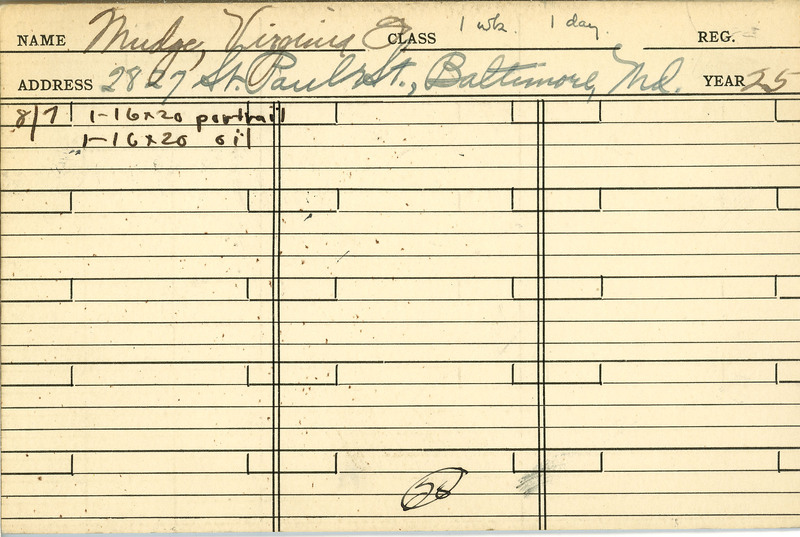 NAME Mudge, Virginia E. CLASS 1 wk. 1 day. REG.
ADDRESS 2827 St. Paul St., Baltimore, Md. YEAR 25
8/7 1-16x20 portrait
1-16x20 oil